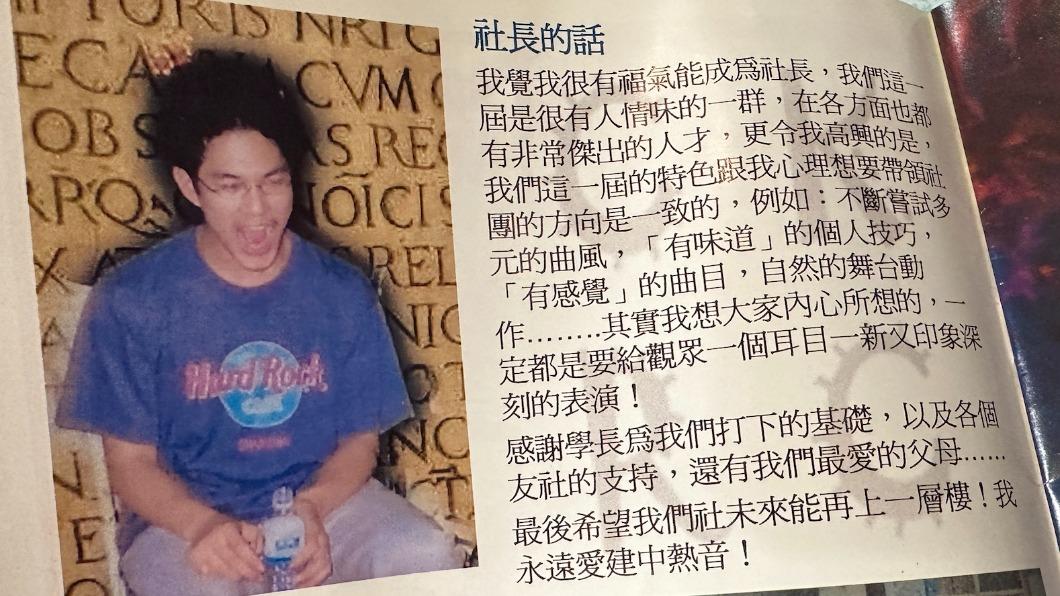 社長的話
我覺我很有福氣能成為社長，我們這一
屆是很有人情味的一群，在各方面也都
有非常傑出的人才，更令我高興的是，
我們這一屆的特色跟我心理想要帶領社
團的方向是一致的，例如：不斷嘗試多
元的曲風，「有味道」的個人技巧，
「有感覺」的曲目，自然的舞台動
作………其實我想大家內心所想的，一
定都是要給觀眾一個耳目一新又印象深
刻的表演！
感謝學長為我們打下的基礎，以及各個
友社的支持，還有我們最愛的父母……
最後希望我們社未來能再上一層樓！我
永遠愛建中熱音！
TORIS NRIG
ECA CVM
OB S AS REG
RPQ NOICI
X A REL
NIC
Hard Rock
Cafe